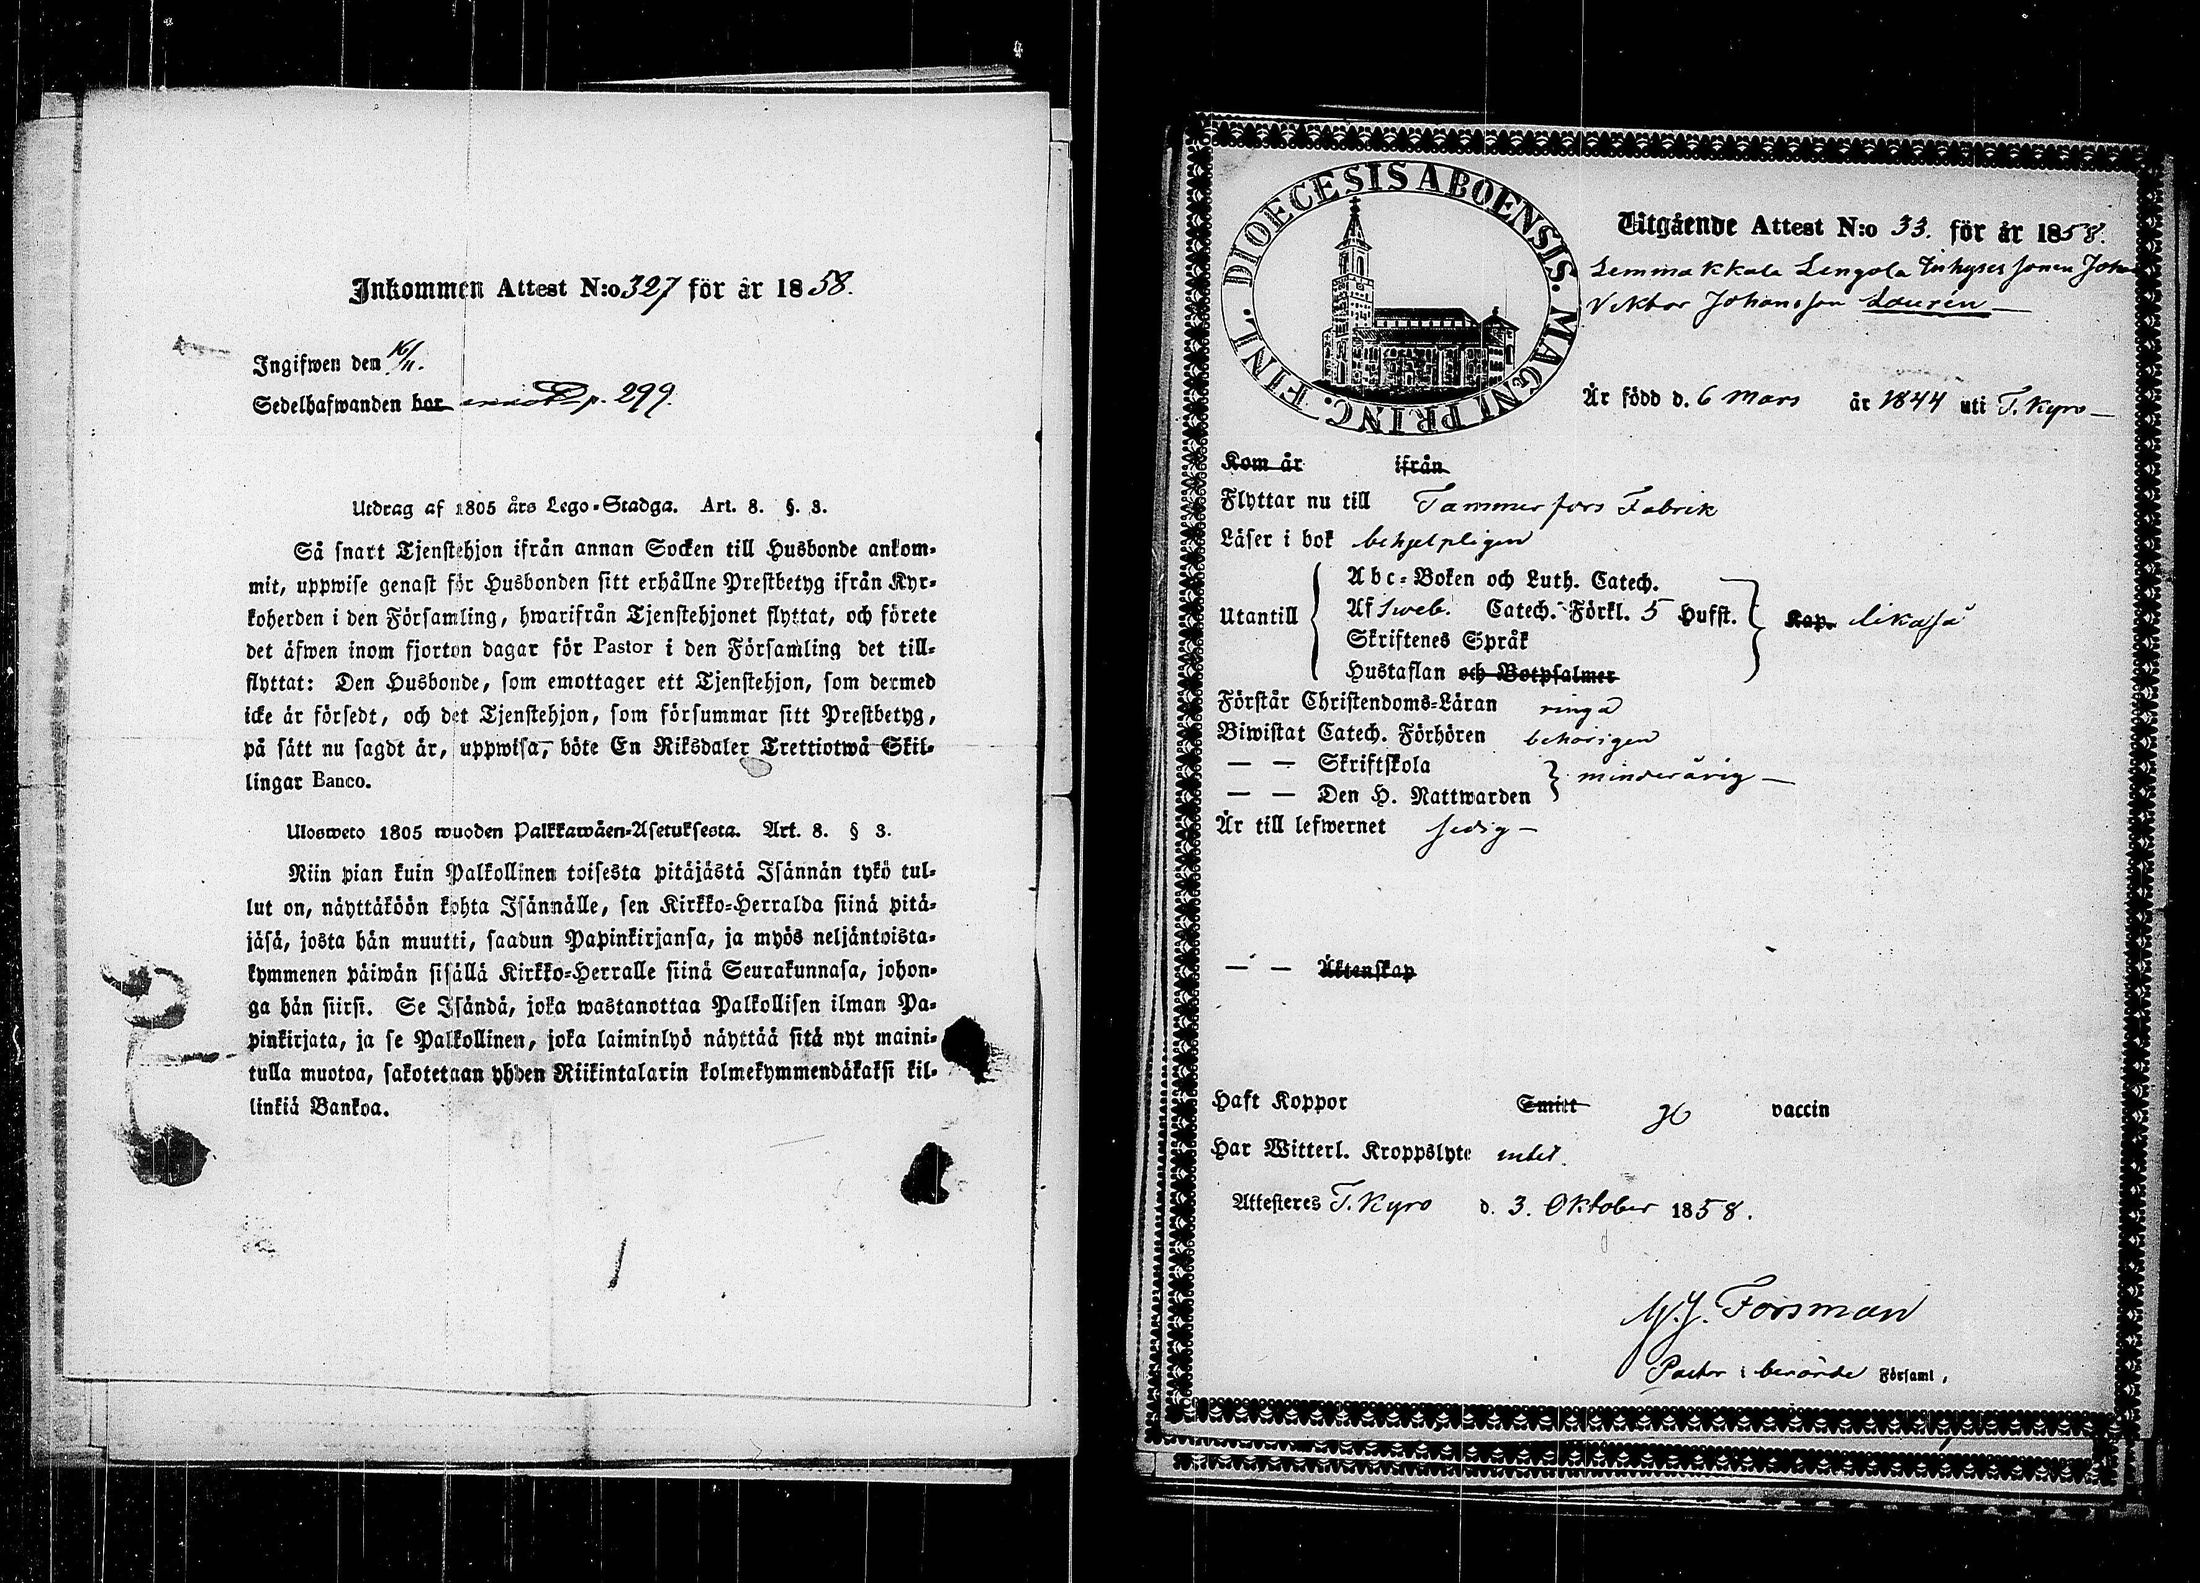 Inkommen Attest N:o 327 för år 1858.
Ingifwen den 16/11.
Sedelhafwanden bor p. 299.
Utdrag af 1805 års Lego-Stadga. Art. 8. §. 3.
Så snart Tjenstehjon ifrån annan Socken till Husbonde ankom-
mit, uppwise genast för Husbonden sitt erhållne Prestbetyg ifrån Kyr-
koherden i den Församling, hwarifrån Tjenstehjonet flyttat, och förete
det äfwen inom fjorton dagar för Pastor i den Församling det till-
flyttat: Den Husbonde, som emottager ett Tjenstehjon, som dermed
icke är försedt, och det Tjenstehjon, som försummar sitt Prestbetyg,
på sätt nu sagdt är, uppwisa, böte En Riksdaler Trettiotwå Skil-
lingar Banco.
Ulosweto 1805 wuoden Palkkawäen-Asetuksesta. Art. 8. § 3.
Niin pian kuin Palkollinen toisesta pitäjästä Isännän tykö tul-
lut on, näyttäköön kohta Isännälle, sen Kirkko-Herralda siinä pitä-
jäsä, josta hän muutti, saadun Papinkirjansa, ja myös neljäntoista-
kymmenen päiwän sisällä Kirkko-Herralle siinä Seurakunnasa, johon-
ga hän siirsi. Se Isändä, joka wastanottaa Palkollisen ilman Pa-
pinkirjata, ja se Palkollinen, joka laiminlyö näyttää sitä nyt maini-
tulla muotoa, sakotetaan yhden Riikintalarin kolmekymmendäkaksi kil-
linkiä Bankoa.
DIOECESIS ABOENSIS. MAGNI PRINC. FINL.
Utgående Attest N:o 33. för år 1858.
Lemmakkala Lengola Inhyses sonen Joha
Viktor Johansson Laurén
Är född d. 6 Mars år 1844 uti T. Kyro
Kom år ifrån
Flyttar nu till Tammerfors Fabrik
Läser i bok behjelpligen
Abc-Boken och Luth. Catech.
Utantill Af Sweb. Catech. Förkl. 5 Hufst. Kap. likaså
Skriftenes Språk
Hustaflan och Botpsalmer
Förstår Christendoms-Läran ringa
Biwistat Catech. Förhören behörigen
— — Skriftskola
— — Den H. Nattwarden minderårig
Är till lefwernet sedig
— — Äktenskap
Haft Koppor Smitt vaccin
Har Witterl. Kroppslyte intet.
Attesteres T. Kyro d. 3. Oktober 1858.
Forsman
Pastor i berörde Församl,